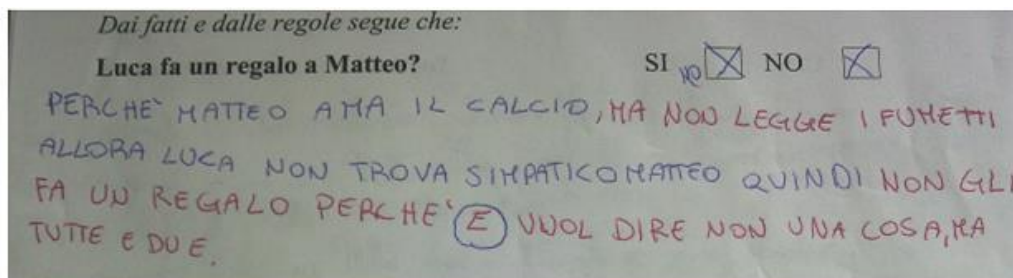 Dai fatti e dalle regole segue che:
Luca fa un regalo a Matteo? SI NO NO
PERCHE' MATTEO AMA IL CALCIO, MA NON LEGGE I FUMETTI
ALLORA LUCA NON TROVA SIMPATICO MATTEO QUINDI NON GLI
FA UN REGALO PERCHE' E VUOL DIRE NON UNA COSA, MA
TUTTE E DUE.